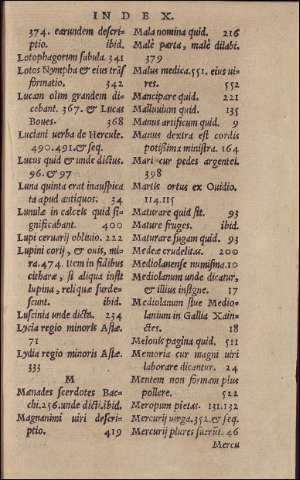 INDEX.
374. earundem descri-
ptio. ibid.
Lotophagorum fabula. 341
Lotos Nympha & eius trās
formatio. 342
Lucam olim grandem di-
cebant. 367. & Lucas
Boues. 368
Luciani uerba de Hercule.
490.491.& seq.
Lucus quid & unde dictus.
96. & 97
Luna quinta erat inauspica
ta apud antiquos. 34
Lunulæ in calceis quid si-
gnificabant. 400
Lupi ceruarij oblitio. 222
Lupini corij, & ouis, mi-
ra. 474. item in fidibus
citharæ, si aliqua insit
lupina, reliquæ surde-
scunt. ibid.
Luscinia unde dicta. 234
Lycia regio minoris Asiæ.
71
Lydia regio minoris Asiæ.
333
M
Mænades sacerdotes Bac-
chi. 256. unde dicti. ibid.
Magnanimi uiri descri-
ptio. 419
Mala nomina quid. 216
Malè parta, malè dilabi.
379
Malus medica. 551. eius ui-
res. 552
Mancipare quid. 221
Malluuium quid. 135
Manus artificum quid. 9
Manus dextra est cordis
potissima ministra. 164
Mari cur pedes argentei.
398
Martis ortus ex Ouidio.
114.115
Maturare quid sit. 93
Mature fruges. ibid.
Maturare fugam quid. 93
Medeæ crudelitas. 200
Mediolanense numisma. 10
Mediolanum unde dicatur,
& illius insigne. 17
Mediolanum siue Medio-
lanium in Gallia Xain-
ctes. 18
Melonis pagina quid. 511
Memoria cur magni uiri
laborare dicantur. 24
Mentem non formam plus
pollere. 522
Meropum pietas. 131.132
Mercurij uirga. 352. & seq.
Mercurij plures fuerūt. 46
Mercu